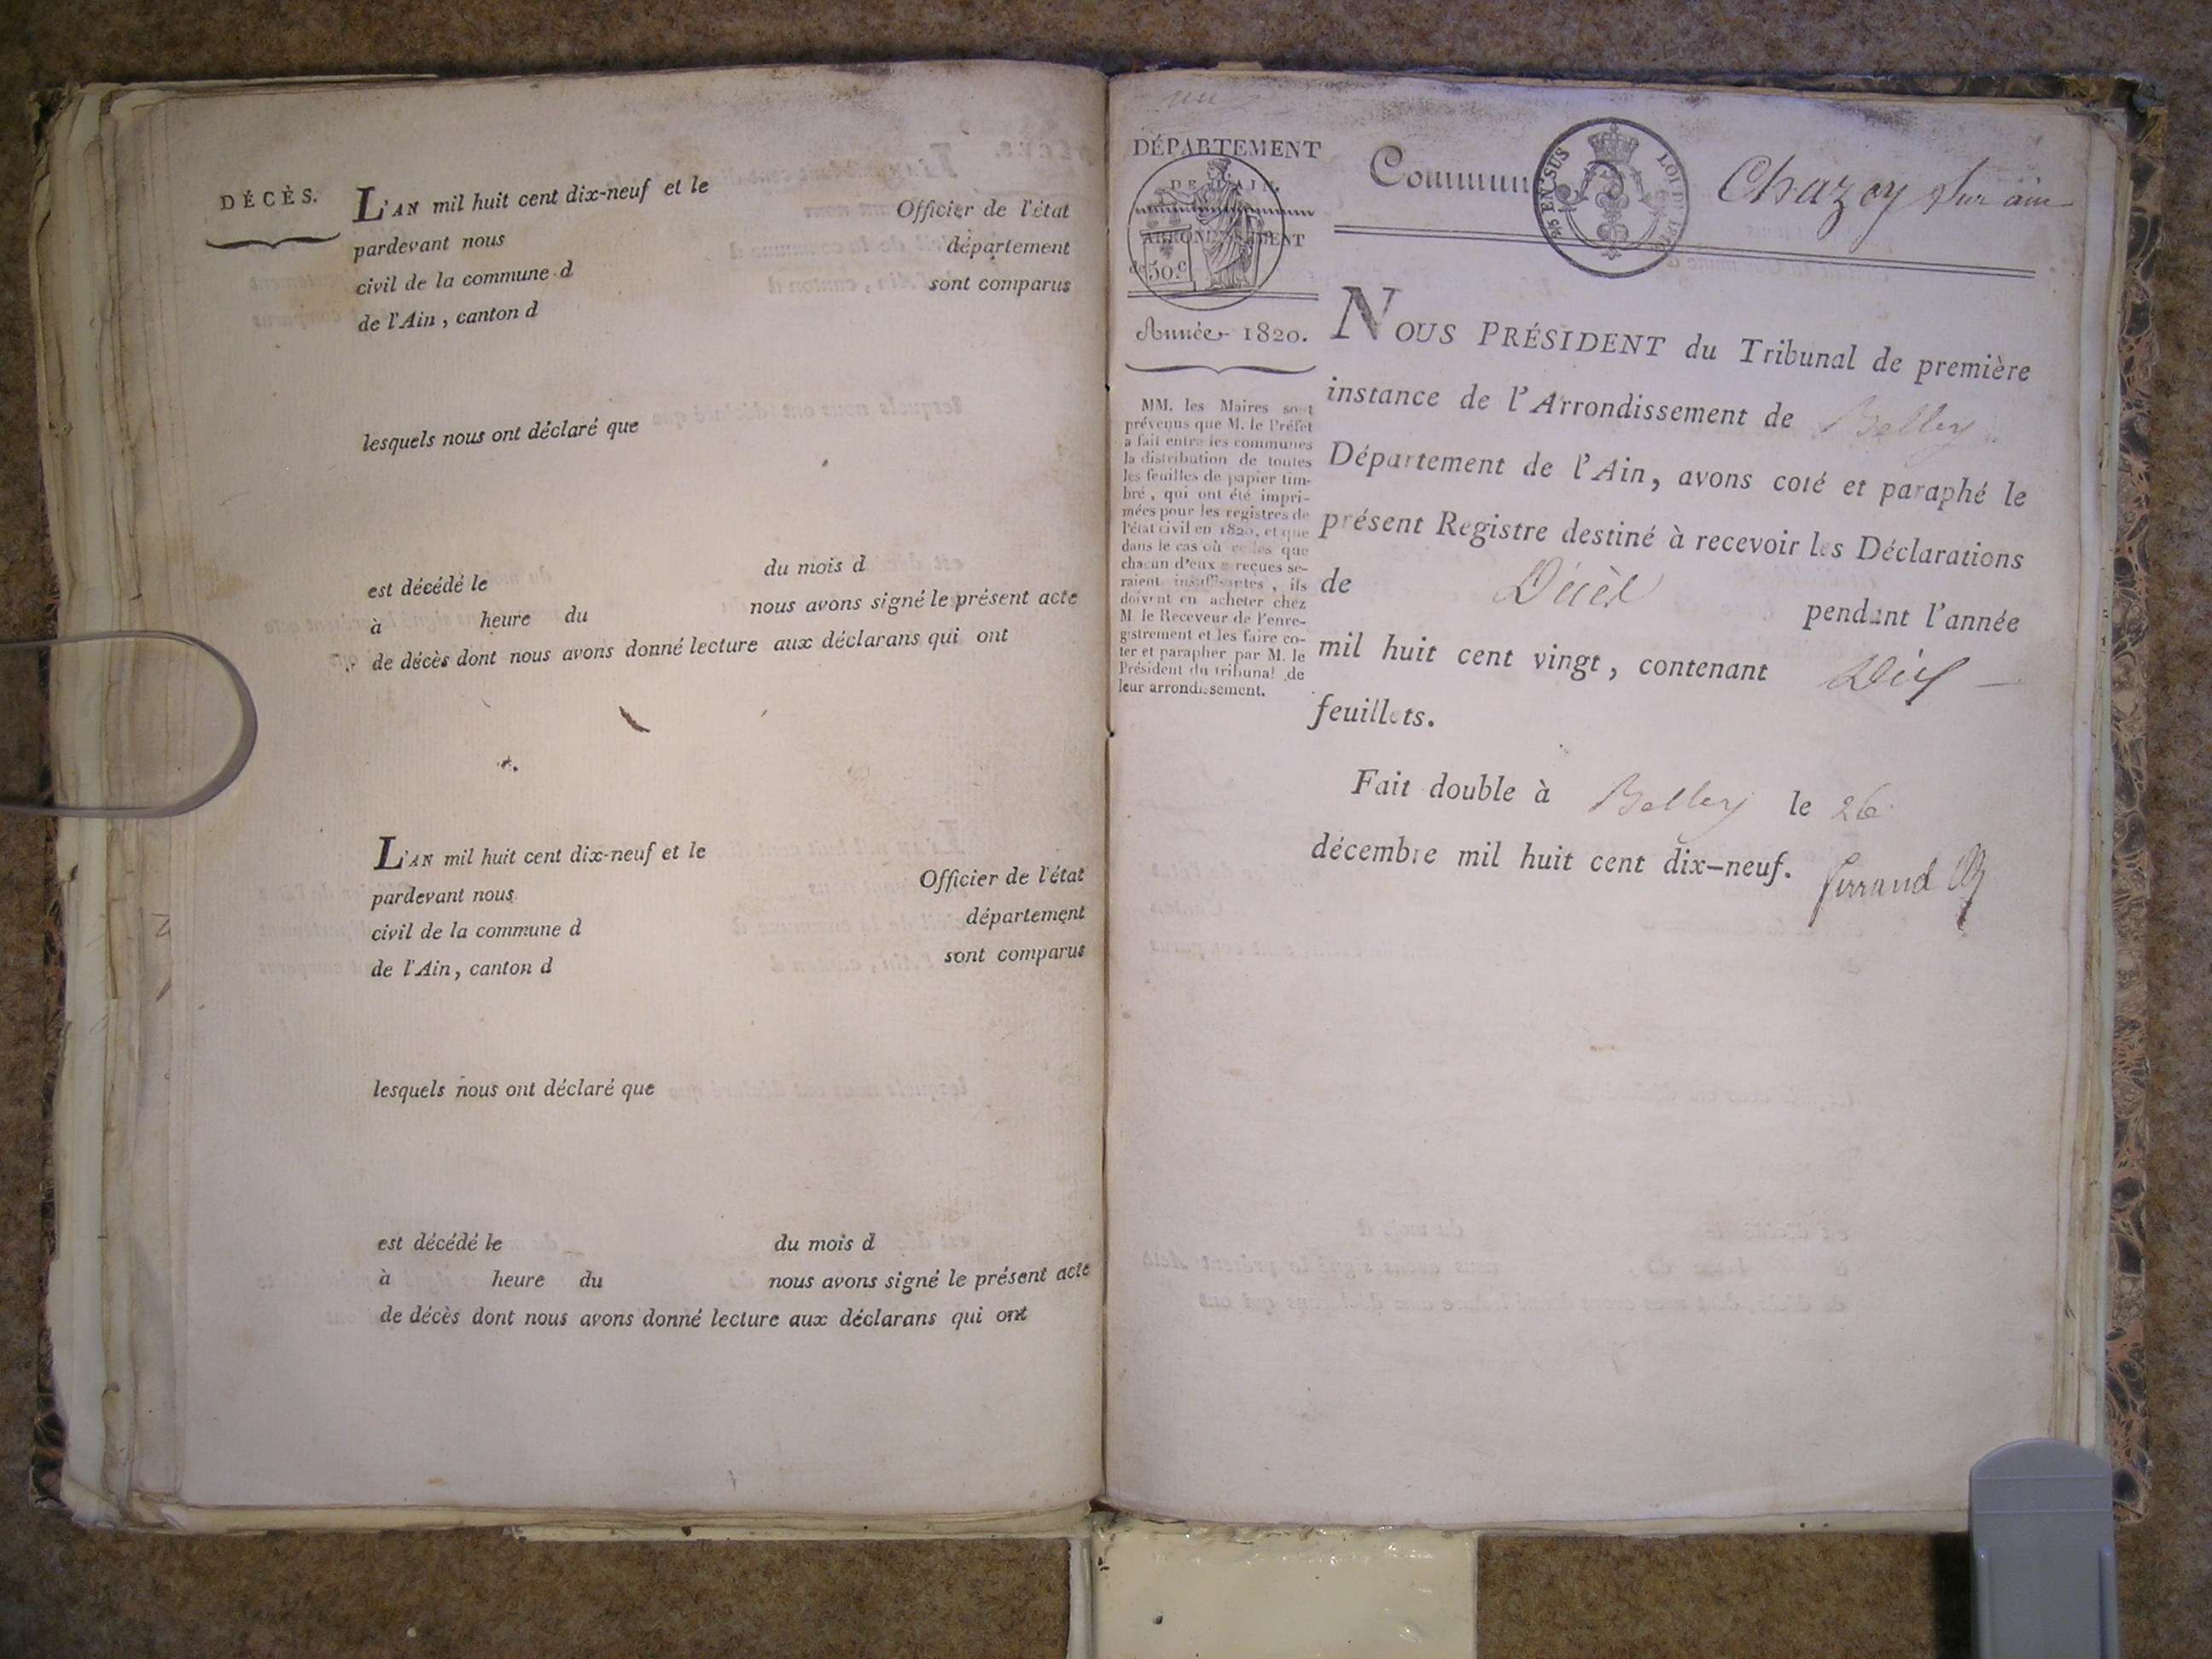 DÉCÈS.
L'AN mil huit cent dix-neuf et le
pardevant nous Officier de l'état
civil de la commune d département
de l'Ain, canton d sont comparus
lesquels nous ont déclaré que
est décédé le du mois d
à heure du nous avons signé le présent acte
de décès dont nous avons donné lecture aux déclarans qui ont
L'AN mil huit cent dix-neuf et le
pardevant nous Officier de l'état
civil de la commune d département
de l'Ain, canton d sont comparus
lesquels nous ont déclaré que
est décédé le du mois d
à heure du nous avons signé le présent acte
de décès dont nous avons donné lecture aux déclarans qui ont
DÉPARTEMENT
DE L'AIN.
ARRONDISSEMENT
de
50.c
Année 1820.
MM. les Maires sont
prévenus que M. le Préfet
a fait entre les communes
la distribution de toutes
les feuilles de papier tim-
bré, qui ont été impri-
mées pour les registres de
l'état civil en 1820, et que
dans le cas où celles que
chacun d'eux a reçues se-
raient insuffisantes, ils
doivent en acheter chez
M. le Receveur de l'enre-
gistrement et les faire co-
ter et parapher par M. le
Président du tribunal de
leur arrondissement.
Commun Chazey sur ain
EN SUS LOI DE
NOUS PRÉSIDENT du Tribunal de première
instance de l'Arrondissement de Belley
Département de l'Ain, avons coté et paraphé le
présent Registre destiné à recevoir les Déclarations
de Décès pendant l'année
mil huit cent vingt, contenant Dix
feuillets.
Fait double à Belley le 26
décembre mil huit cent dix-neuf.